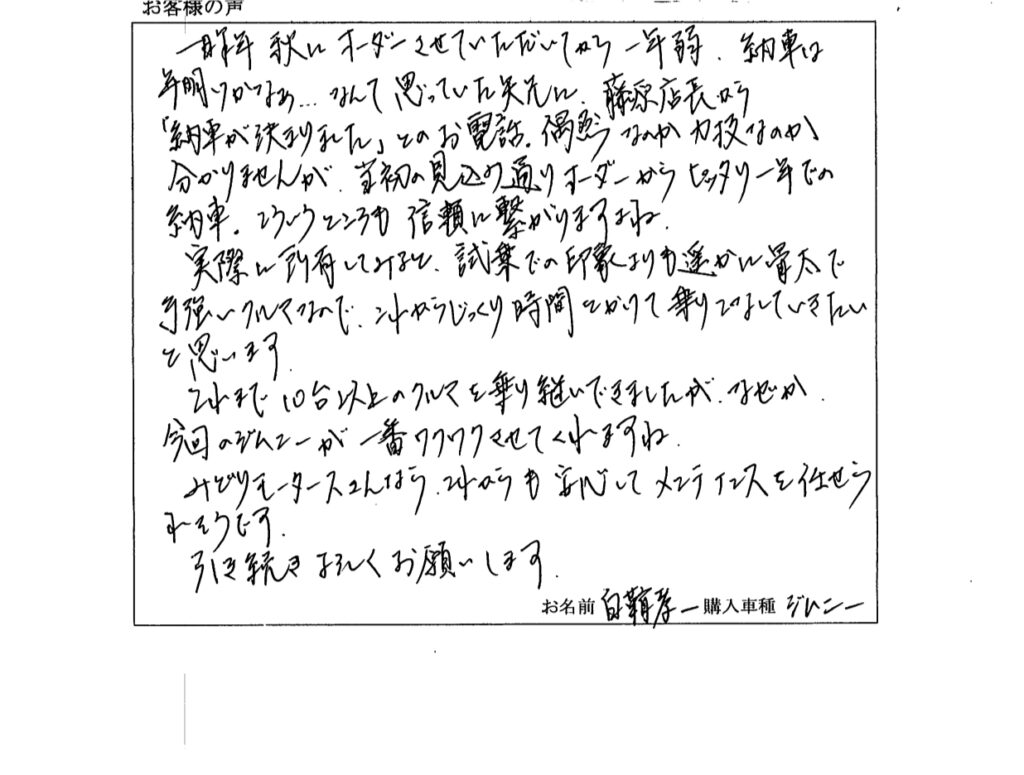 お客様の声
一昨年 秋にオーダーさせていただいてから一年弱、納車は
年明けかなぁ…なんて思っていた矢先に、藤原店長から
「納車が決まりました」とのお電話。偶然なのか力技なのか
分かりませんが、当初の見込み通りオーダーからピッタリ一年での
納車。こういうところも信頼に繋がりますよね。
実際に所有してみると、試乗での印象よりも遥かに骨太で
手強いクルマなので、これからじっくり時間をかけて乗りこなしていきたい
と思います。
これまで10台以上のクルマを乗り継いできましたが、なぜか
今回のジムニーが一番ワクワクさせてくれますね。
みどりモータースさんなら、これからも安心してメンテナンスを任せら
れそうです。
引き続きよろしくお願いします。
お名前 白鞘孝一 購入車種 ジムニー